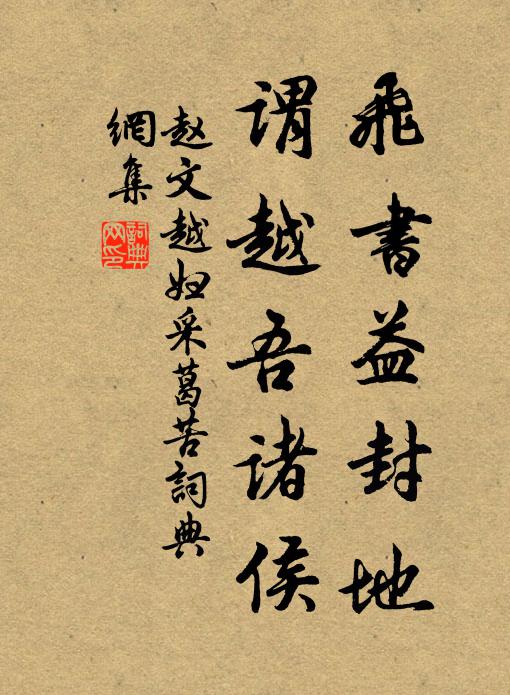 飛書益封地
謂越吾諸侯
赵文越妇采葛苦詞典
網集
詞典
网印